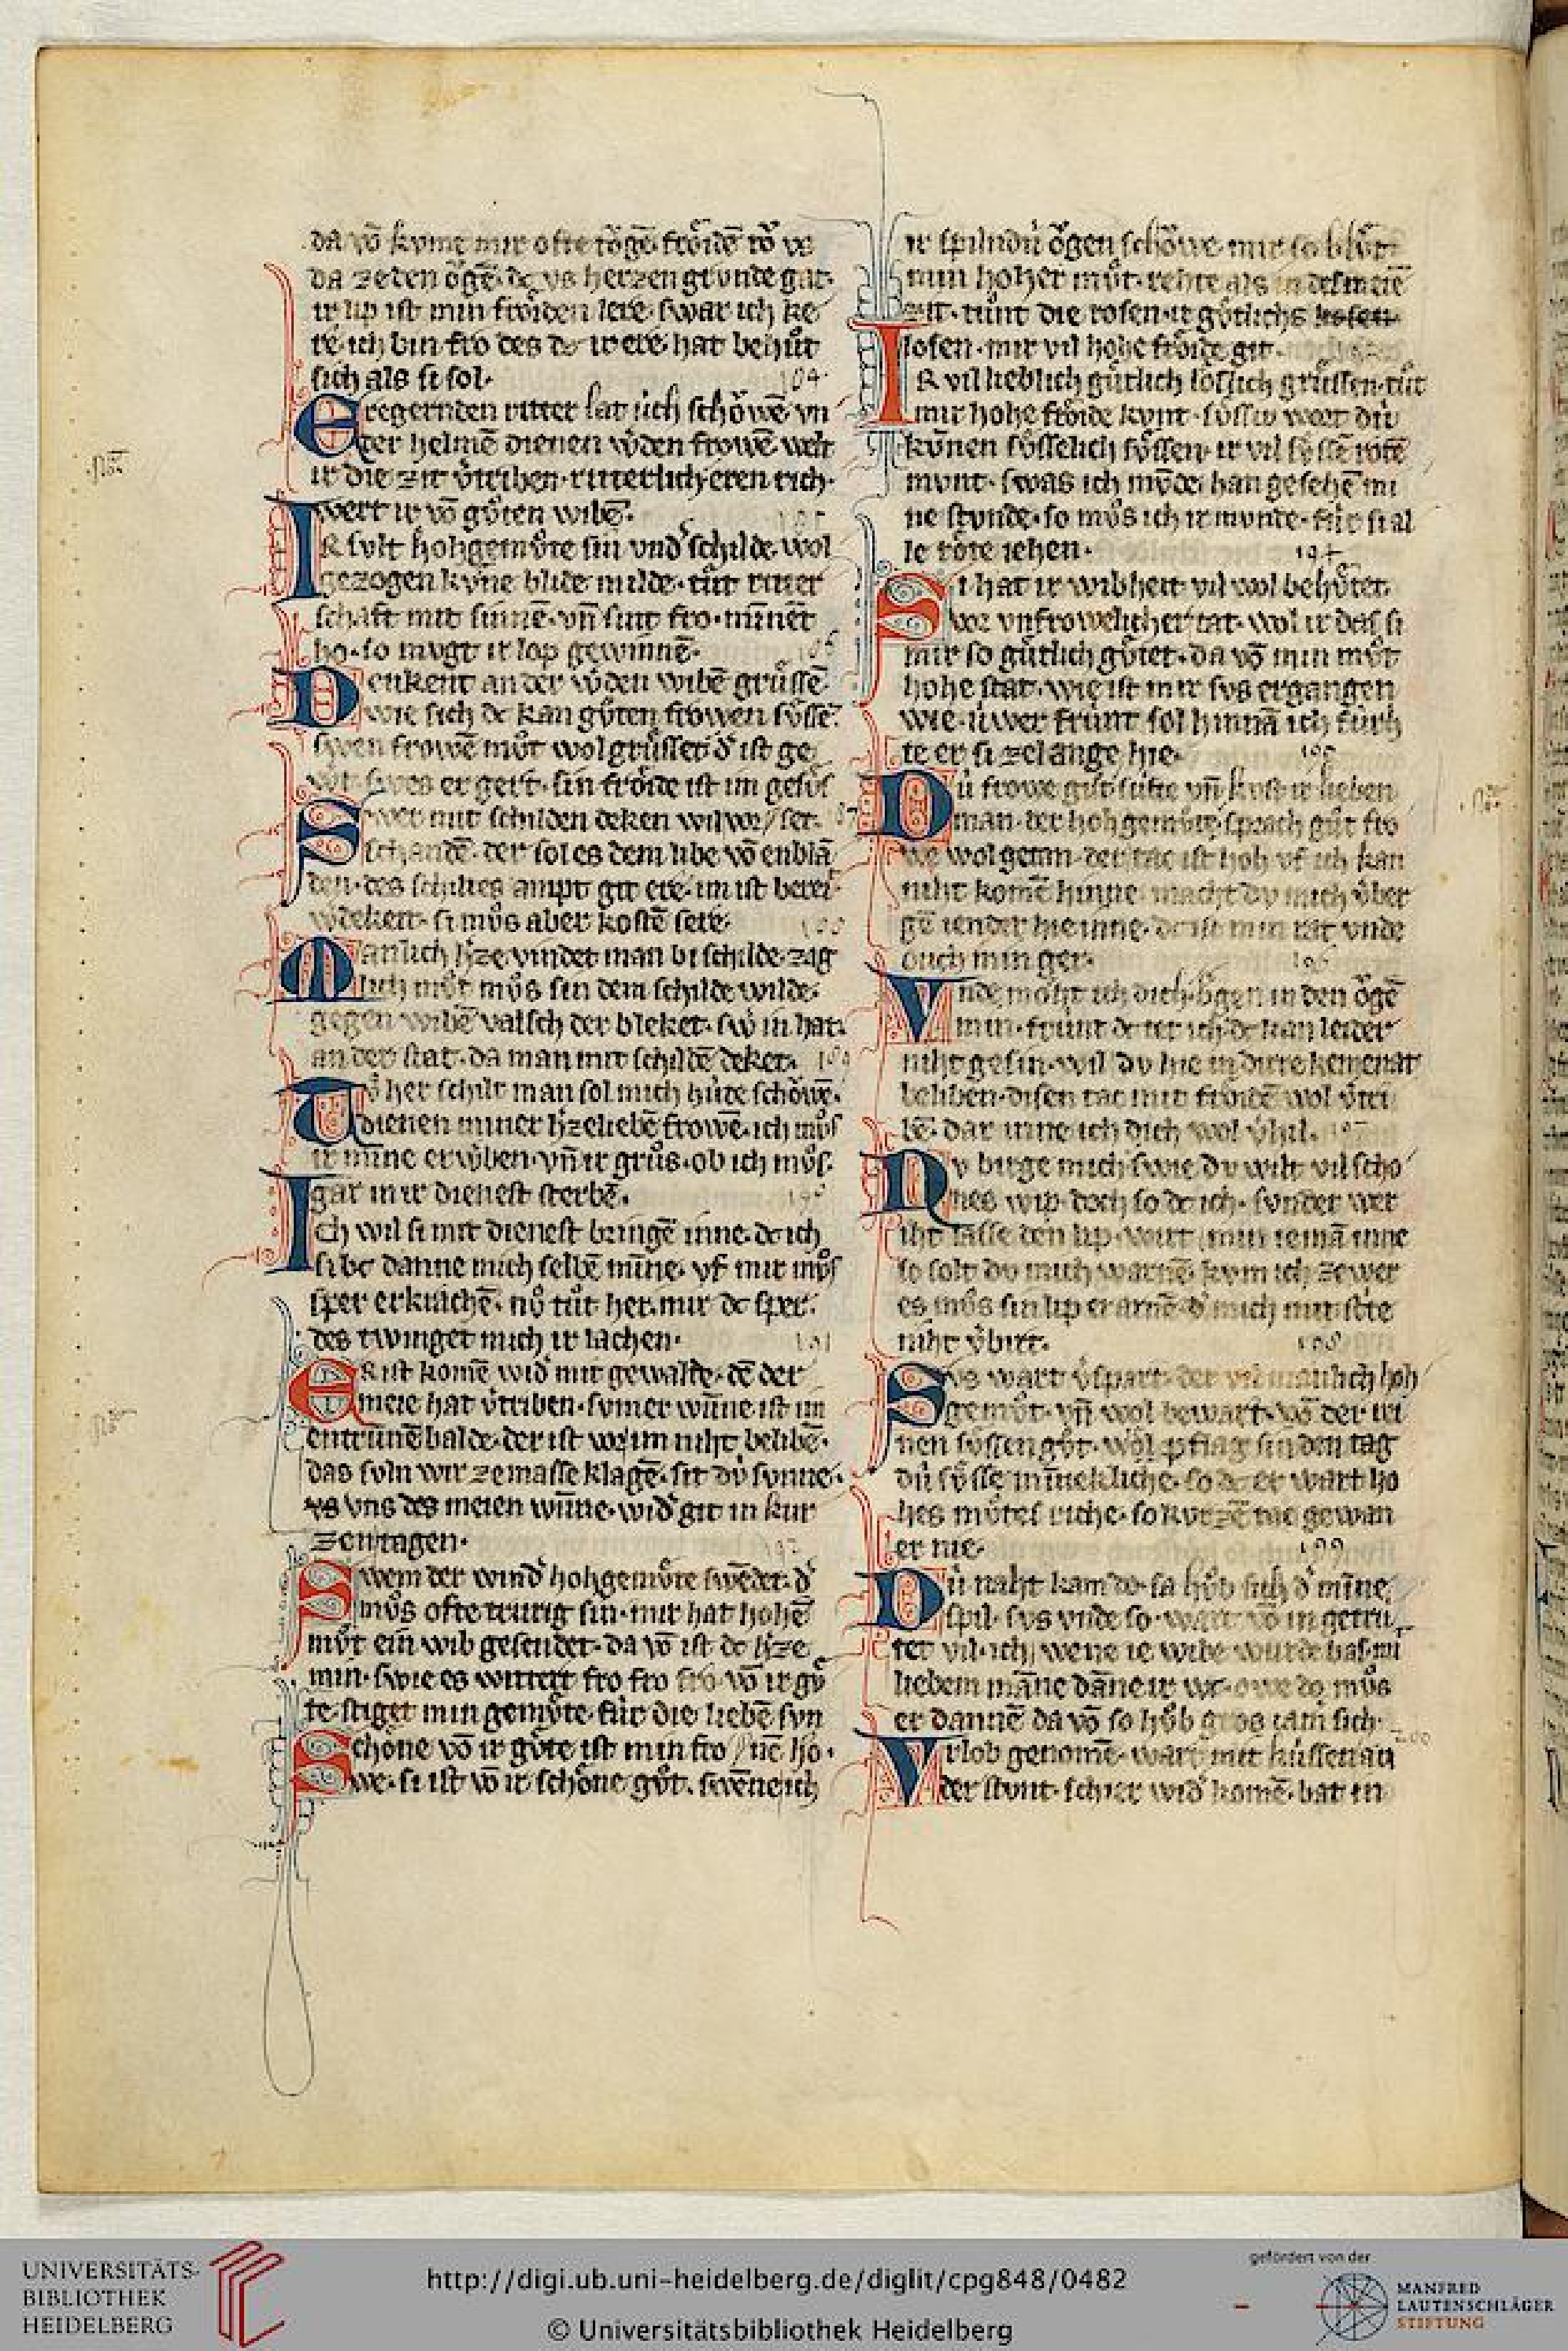 da vō kvmt mir ofte tŏgē frŏidē tŏ vs
da ze den ŏgē. dc vs herzen grvnde gat.
ir lip ist min frŏiden lere. swar ich ke
re. ich bin fro des dc ir ere. hat behůt
sich als si sol.
184
Eregernden ritter lat ůch schŏwē vn
der helmē dienen w̓den frowē. welt
ir die zit v̓triben. ritterlich. eren rich.
wert ir vō gůten wibē.
IR svlt hohgemůte sin vnd̓ schilde. wol
gezogen kvne blide milde. tůt ritter
schaft mit sinnē. vn̄ sint fro. minnēt
ho. so mvgt ir lop gewinnē.
Denkent an der w̓den wibē grůssē
wie sich dc kan gůten frowen sůssē.
swen frowē mvt wol grůsset. d̓ ist ge
w̓t. swes er gert. sin frŏide ist im gesůs
Swer mit schilden deken wil vor
schandē. der sol es dem libe vō enblā
den. des schiltes ampt git ere. im ist bereit
w̓dekeit. si můs aber kostē sere.
Manlich h̓ze vindet man bi schilde. zag
lich můt můs sin dem schilde wilde.
gegen wibē valsch der bleket. sw̓ in hat.
an der stat. da man mit schildē deket.
189
Tŏ her schilt man sol mich hůte schŏwē.
dienen miner h̓zeliebē frowē. ich můs
ir mīne erw̓ben. vn̄ ir grůs. ob ich můs.
gar in ir dienest sterbē.
190
Ich wil si mit dienest bringē inne. dc ich
si bc danne mich selbē mīne. vf mir můs
sper erkrachē. nŏ tůt her. mir dc sper.
des twinget mich ir lachen.
191
ER ist komē wid̓ mit gewalte. dē der
meie hat v̓triben. svmer wūne ist im
entrunnē balde. der ist vor im niht belibē.
das svln wir ze masse klagē. sit dů svnne.
vs vns des meien wūne. wid̓ git in kur
zen tagen.
192
Swem der wind̓ hohgemůte swēdet. d̓
můs ofte trurig sin. mir hat hohē
můt ein wib gesendet. da vō ist dc h̓ze
min. swie es wittert fro fro fro. vō ir gů
te. stiget min gemůte. fůr die liebē svn
Schone vō ir gůte ist min fro ho.
we. si ist vō ir schŏne gůt. swēne ich
ir spilndů ŏgen schŏwe. mir so blůt
min hoher můt. rehte als in des meiē
zit. tůnt die rosen. ir gůtlichs kosen
losen. mir vil hohe frŏide git.
IR vil lieblich gůtlich loslich grůssen. tůt
mir hohe frŏide kvnt. sůssiv wort dů
kůnen sůsselich sůssen. ir vil sůssē rotē
mvnt. swas ich mvnde. han gesehē mi
ne stvnde. so můs ich ir mvnde. fůr si al
le rŏte iehen.
194
Si hat ir wibheit vil wol behůtet.
vor vnfrowelicher tat. wol ir das si
mir so gůtlich gůtet. da vō min můt
hohe stat. wie ist mir svs ergangen
wie. ůwer frůnt sol hinnā ich fůrh
te er si ze lange hie.
195
Dů frowe gůt sůfte vn̄ kvst ir lieben
man. der hohgemůte sprach gůt fro
we wol getan. der tac ist hoh vf ich kan
niht komē hinne. macht dv mich v̓ber
gē iender hie inne. dc ist min rat vnde
ouch min ger.
196
Vnde mŏht ich dich b̓gen in den ŏgē
min. frůnt dc tet ich. dc kan leider
niht gesin. wil dv hie in dirre kemenat
beliben. disen tac mit frŏidē wol v̓tri
bē. dar inne ich dich wol v̓hil.
197
Nv birge mich swie dv wilt vil scho
nes wip. doch so dc ich. svnder wer
iht lasse den lip. wirt min iemā inne
so solt dv mich warnē. kvm ich ze wer
es můs sin lip er arnē. d̓ mich mit strite
niht v̓birt.
198
Svs wart v̓spart. der vil manlich hoh
gemůt. vn̄ wol bewart. vō der rei
nen sůssen gůt. wol pflag sin den tag
dů sůsse mīnekliche. so dc er wart ho
hes můtes riche. so kvrzē tac gewan
er nie.
199
Dů naht kam do. sa hůb sich d̓ mīne
spil. svs vnde so. wart vō in getru
tet vil. ich wene ie wibe wurde bas. mi
liebem māne dāne ir wc. owe do můs
er dannē da vō so hůb gros iam̄ sich.
200
Vrlob genomē. wart mit kůssen an
der stvnt. schier wid̓ komē. bat in
UNIVERSITÄTS-
BIBLIOTHEK
HEIDELBERG
http://digi.ub.uni-heidelberg.de/diglit/cpg848/0482
© Universitätsbibliothek Heidelberg
gefördert von der
MANFRED
LAUTENSCHLÄGER
STIFTUNG